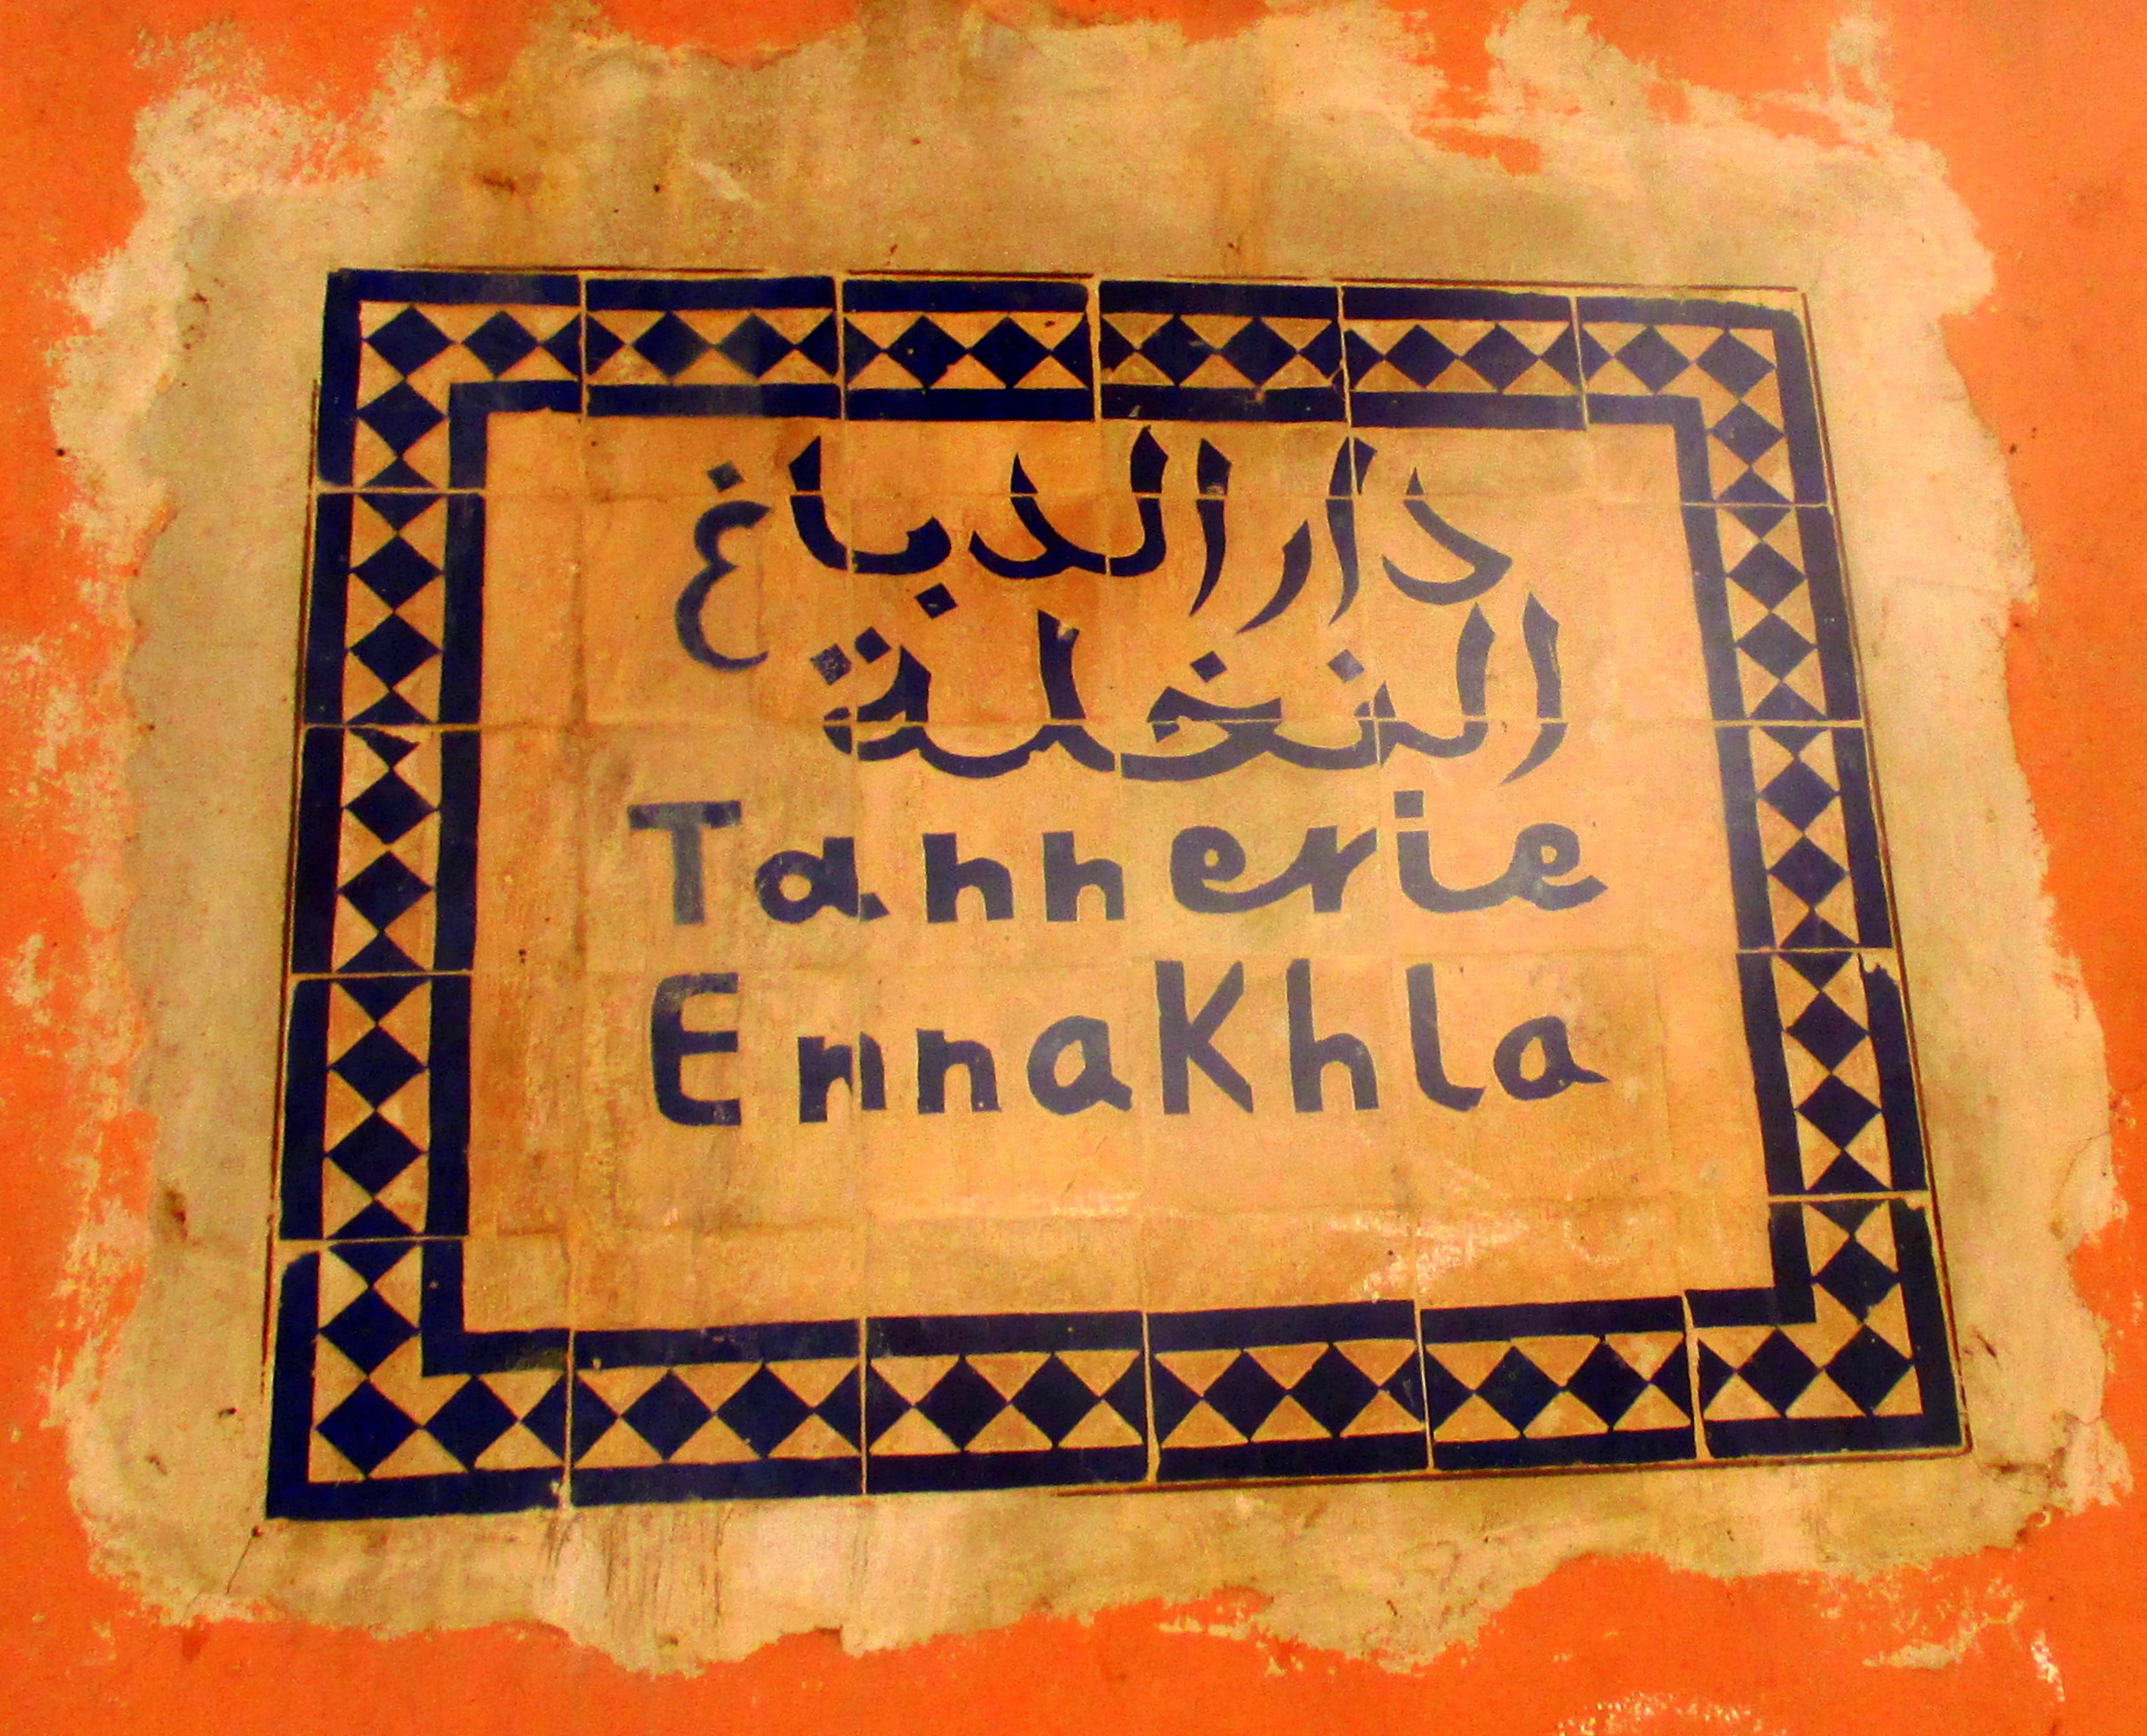 دار الدباغ
النخلة
Tannerie
Ennakhla